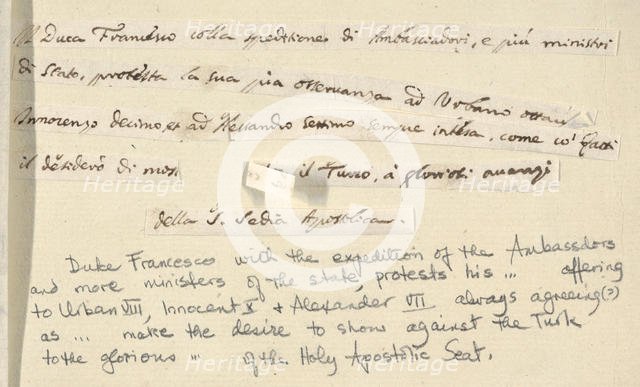 Il Duca Francesco colla spedizione di Ambasciadori, e più ministri
di Stato, protesta la sua pia osservanza ad Urbano ottavo
Innocenzo decimo, et ad Alessandro Settimo sempre intesa, come co' fatti
il desiderò di mos il Turco, à gloriosi avanzi
della S. Sedia Apostolica.
Duke Francesco with the expedition of the Ambassdors
and more ministers of the state, protests his ... offering
to Urban VIII, Innocent X + Alexander VII always agreeing(?)
as ... make the desire to show against the Turk
to the glorious ... of the Holy Apostolic Seat.
Heritage
Heritage
Heritage
Heritage
Heritage
Heritage